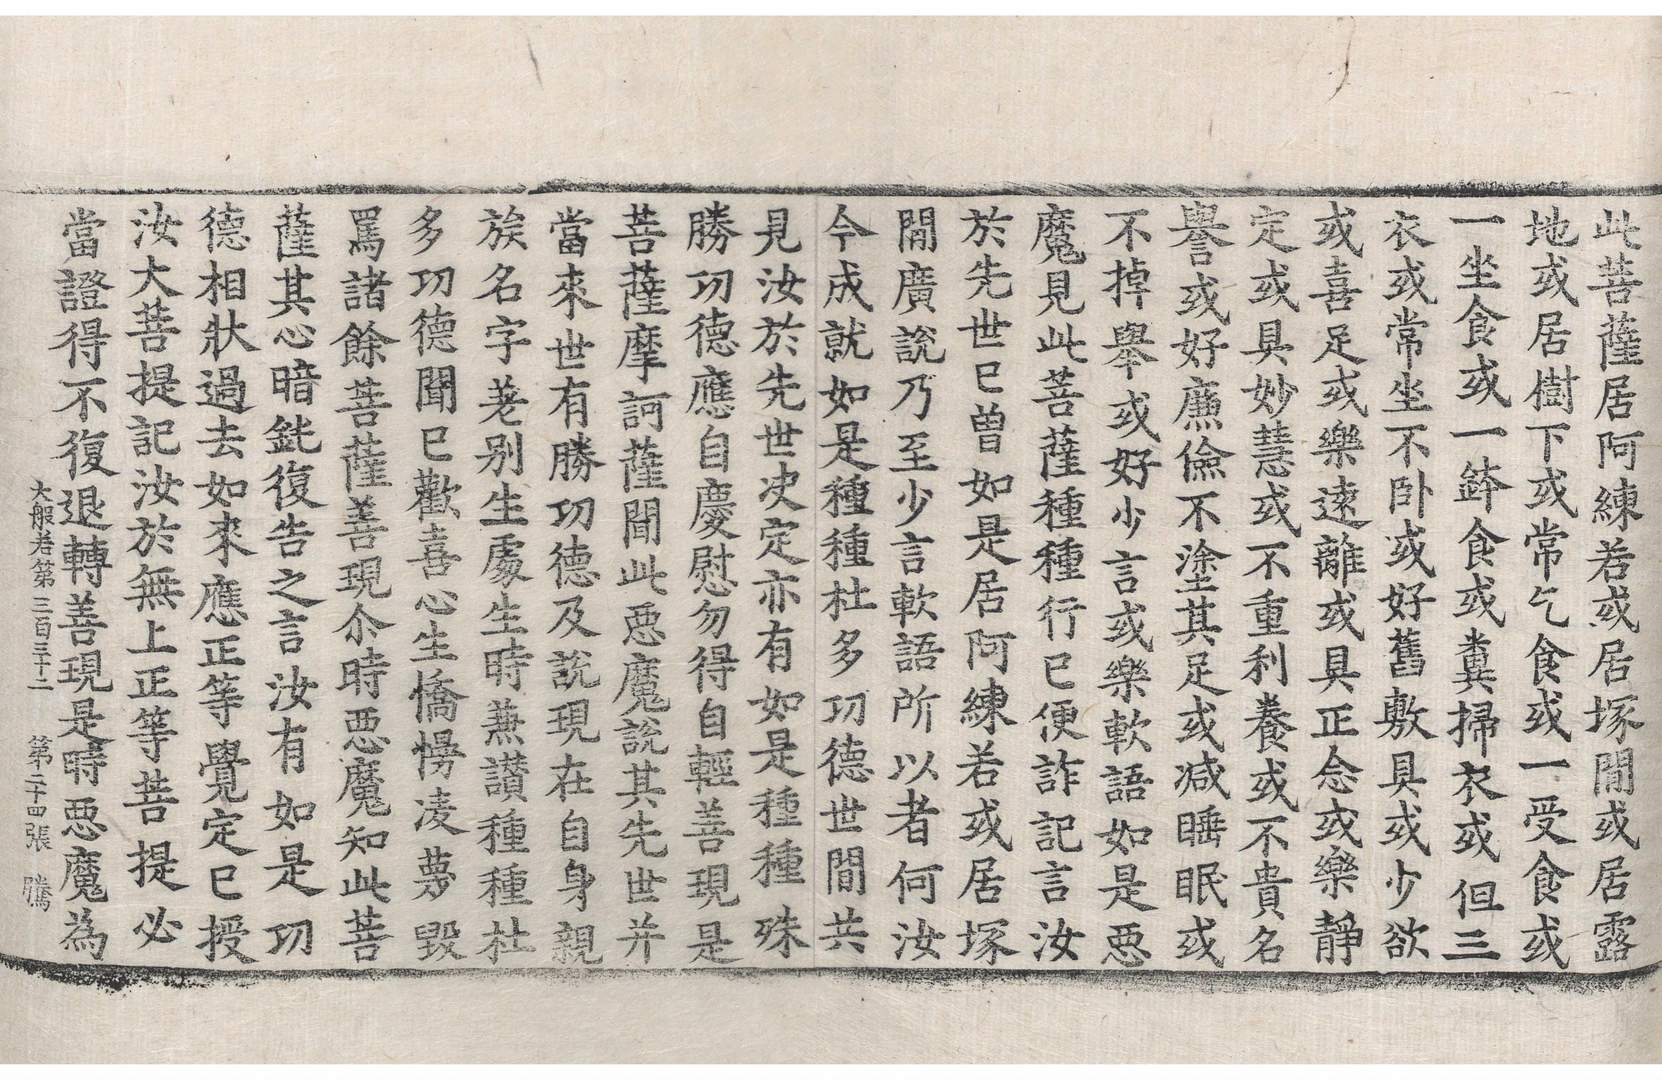 此菩薩居阿練若或居塚間或居露
地或居樹下或常乞食或一受食或
一坐食或一鉢食或糞掃衣或但三
衣或常坐不卧或好舊敷具或少欲
或喜足或樂遠離或具正念或樂靜
定或具妙慧或不重利養或不貴名
譽或好廉儉不塗其足或减睡眠或
不掉舉或好少言或樂軟語如是惡
魔見此菩薩種種行已便詐記言汝
於先世已曾如是居阿練若或居塚
間廣說乃至少言軟語所以者何汝
今成就如是種種杜多功德世間共
見汝於先世决定亦有如是種種殊
勝功德應自慶慰勿得自輕善現是
菩薩摩訶薩聞此惡魔說其先世并
當來世有勝功德及說現在自身親
族名字差别生處生時兼讃種種杜
多功德聞已歡喜心生憍慢凌蔑毀
罵諸餘菩薩善現尒時惡魔知此菩
薩其心暗鈍復告之言汝有如是功
德相狀過去如來應正等覺定已授
汝大菩提記汝於無上正等菩提必
當證得不復退轉善現是時惡魔為
大般若第三百三十二 第二十四張 騰